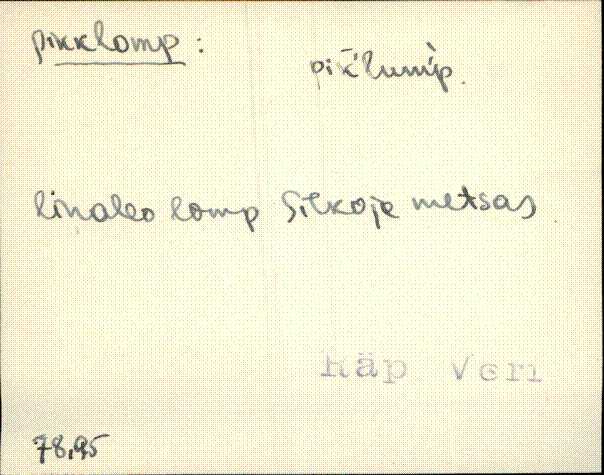 pikklomp:
pik̄'lum̀p.
linaleo lomp Sitkoje metsas
Räp Veri
78,95